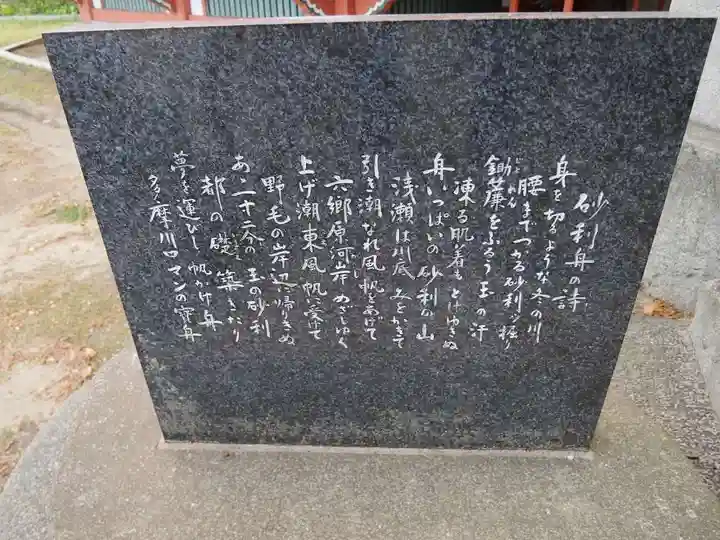 砂利舟の詩
身を切るような冬の川
腰までつかる砂利ッ掘り
鋤簾をふるう玉の汗
凍る肌着もとけゆきぬ
舟いっぱいの砂利の山
浅瀬は川底みをかきて
引き潮なれ風帆をあげて
六郷原河岸めざしゆく
上げ潮東風帆に受けて
野毛の岸辺に帰りきぬ
あゝ二十二各の玉の砂利
都の礎を築きたり
夢を運びし帆かけ舟
多摩川ロマンの宝舟